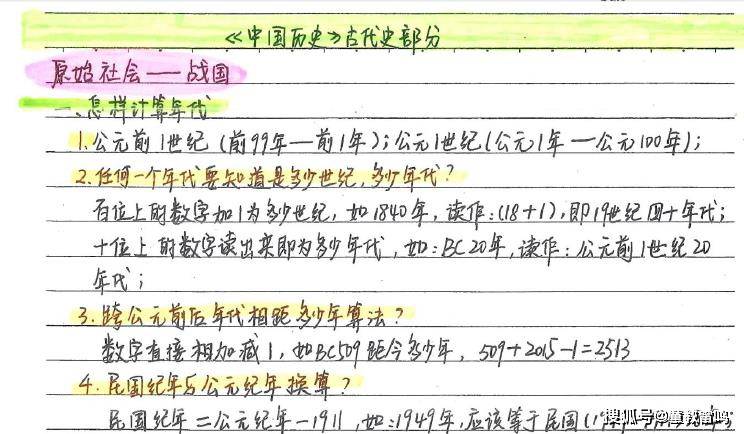 《中国历史》古代史部分
原始社会——战国
一、怎样计算年代
1.公元前1世纪(前99年—前1年);公元1世纪(公元1年—公元100年);
2.任何一个年代要知道是多少世纪,多少年代?
百位上的数字加1为多少世纪,如1840年,读作:(18+1),即19世纪四十年代;
十位上的数字读出来即为多少年代,如:BC20年,读作:公元前1世纪20
年代;
3.跨公元前后年代相距多少年算法?
数字直接相加减1,如BC509距今多少年,509+2015-1=2523
4.民国纪年与公元纪年换算?
民国纪年=公元纪年-1911,如:1949年,应该等于民国(19
搜狐号@董教雷鸣